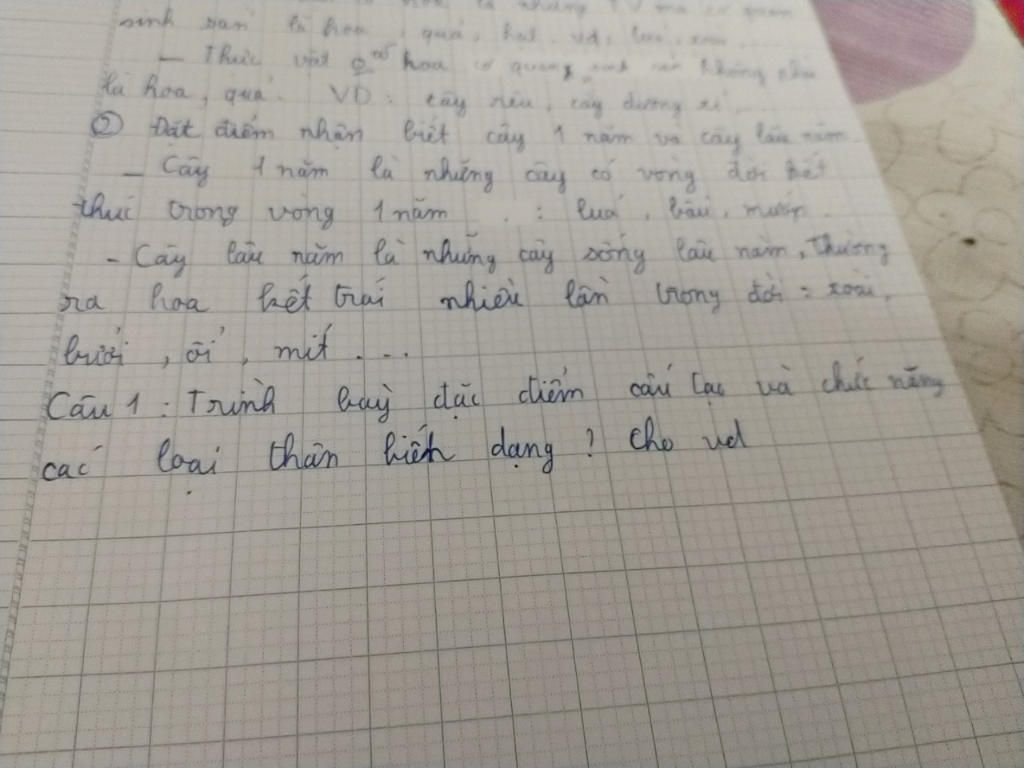 sinh sản là hoa, quả, hạt. vd: lúa, xoài...
- Thực vật o có hoa cơ quan sinh sản không phải
là hoa, quả. VD: cây rêu, cây dương xỉ...
② Đặt điểm nhận biết cây 1 năm và cây lâu năm
- Cây 1 năm là những cây có vòng đời kết
thúc trong vòng 1 năm : luá, bầu, mướp.
- Cây lâu năm là những cây sống lâu năm, thường
ra hoa kết trái nhiều lần trong đời: xoài,
bưởi, ổi, mít...
Câu 1: Trình bày đặc điểm cấu tạo và chức năng
các loại thân biến dạng? cho vd